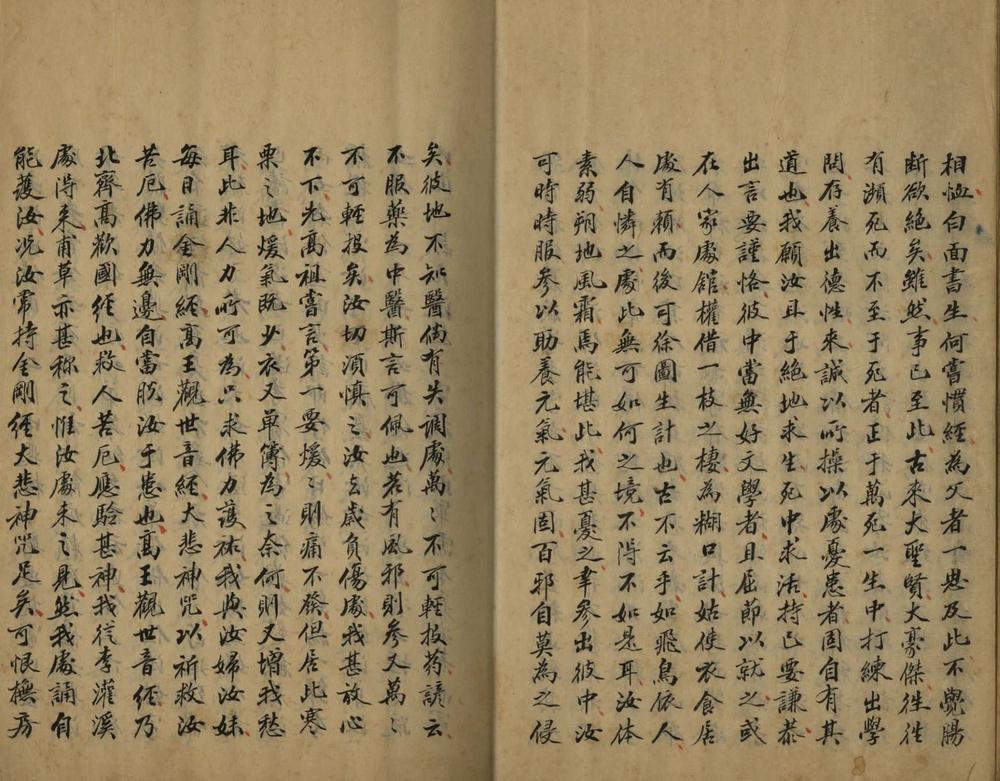 相恤白面書生何嘗慣經為父者一思及此不覺腸
断欲絕矣雖然事已至此古來大聖賢大豪傑徃徃
有瀕死而不至于死者正于萬死一生中打練出學
問存養出德性來誠以所操以處憂患者固自有其
道也我願汝且于絕地求生死中求活持已要謙恭
出言要謹恪彼中當無好文學者且屈節以就之或
在人家處館權借一枝之棲為糊口計姑使衣食居
處有賴而後可徐圖生計也古不云乎如飛鳥依人
人自憐之處此無可如何之境不得不如是耳汝体
素弱朔地風霜焉能堪此我甚憂之幸參出彼中汝
可時時服參以助養元氣元氣固百邪自莫為之侵
矣彼地不知醫倘有失調處萬〻不可輕投藥諺云
不服藥為中醫斯言可佩也若有風邪則參又萬〻
不可輕投矣汝切須慎之汝去歲負傷處我甚放心
不下先高祖嘗言第一要煖〻則痛不發但居此寒
栗之地煖氣既少衣又单薄為之奈何則又增我愁
耳此非人力所可為只求佛力護祐我與汝婦汝妹
每日誦金剛經高王觀世音經大悲神咒以祈救汝
苦厄佛力無邊自當脫汝于患也高王觀世音經乃
北齊高歡國經也救人苦厄應驗甚神我從李灌溪
處得來甫草亦甚称之惟汝處未之見然我處誦自
能護汝况汝常持金剛經大悲神咒足矣可恨撫房